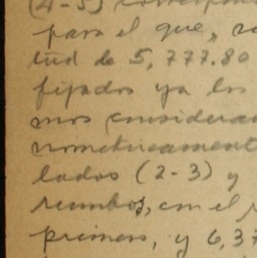 (4-5)
para el que,
tud de 5,777.80
fijados ya los
mos consideran
nometricament
lados (2-3) y
rumbos, con el
primero, y 6,37